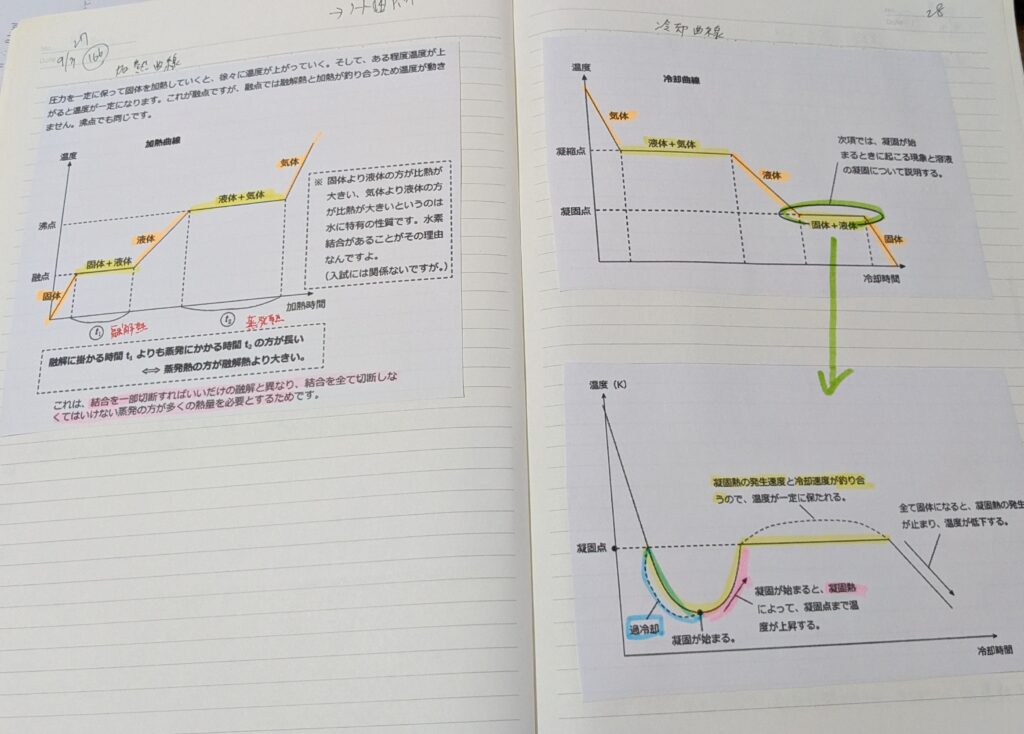 →ノート
27
9/7 166
加熱曲線
圧力を一定に保って固体を加熱していくと、徐々に温度が上がっていく。そして、ある程度温度が上
がると温度が一定になります。これが融点ですが、融点では融解熱と加熱が釣り合うため温度が動き
ません。沸点でも同じです。
加熱曲線
温度
気体
液体+気体
沸点
液体
固体+液体
融点
固体
加熱時間
t₁ 融解熱
t₂ 蒸発熱
※ 固体より液体の方が比熱が
大きい、気体より液体の方
が比熱が大きいというのは
水に特有の性質です。水素
結合があることがその理由
なんですよ。
(入試には関係ないですが。)
融解に掛かる時間 t₁ よりも蒸発にかかる時間 t₂ の方が長い
⟺ 蒸発熱の方が融解熱より大きい。
これは、結合を一部切断すればいいだけの融解と異なり、結合を全て切断しな
くてはいけない蒸発の方が多くの熱量を必要とするためです。
28
冷却曲線
冷却曲線
温度
気体
液体+気体
凝縮点
液体
凝固点
固体+液体
固体
冷却時間
次項では、凝固が始
まるときに起こる現象と溶液
の凝固について説明する。
温度(K)
凝固熱の発生速度と冷却速度が釣り合
うので、温度が一定に保たれる。
全て固体になると、凝固熱の発生
が止まり、温度が低下する。
凝固点
凝固が始まると、凝固熱
によって、凝固点まで温
度が上昇する。
過冷却
凝固が始まる。
冷却時間